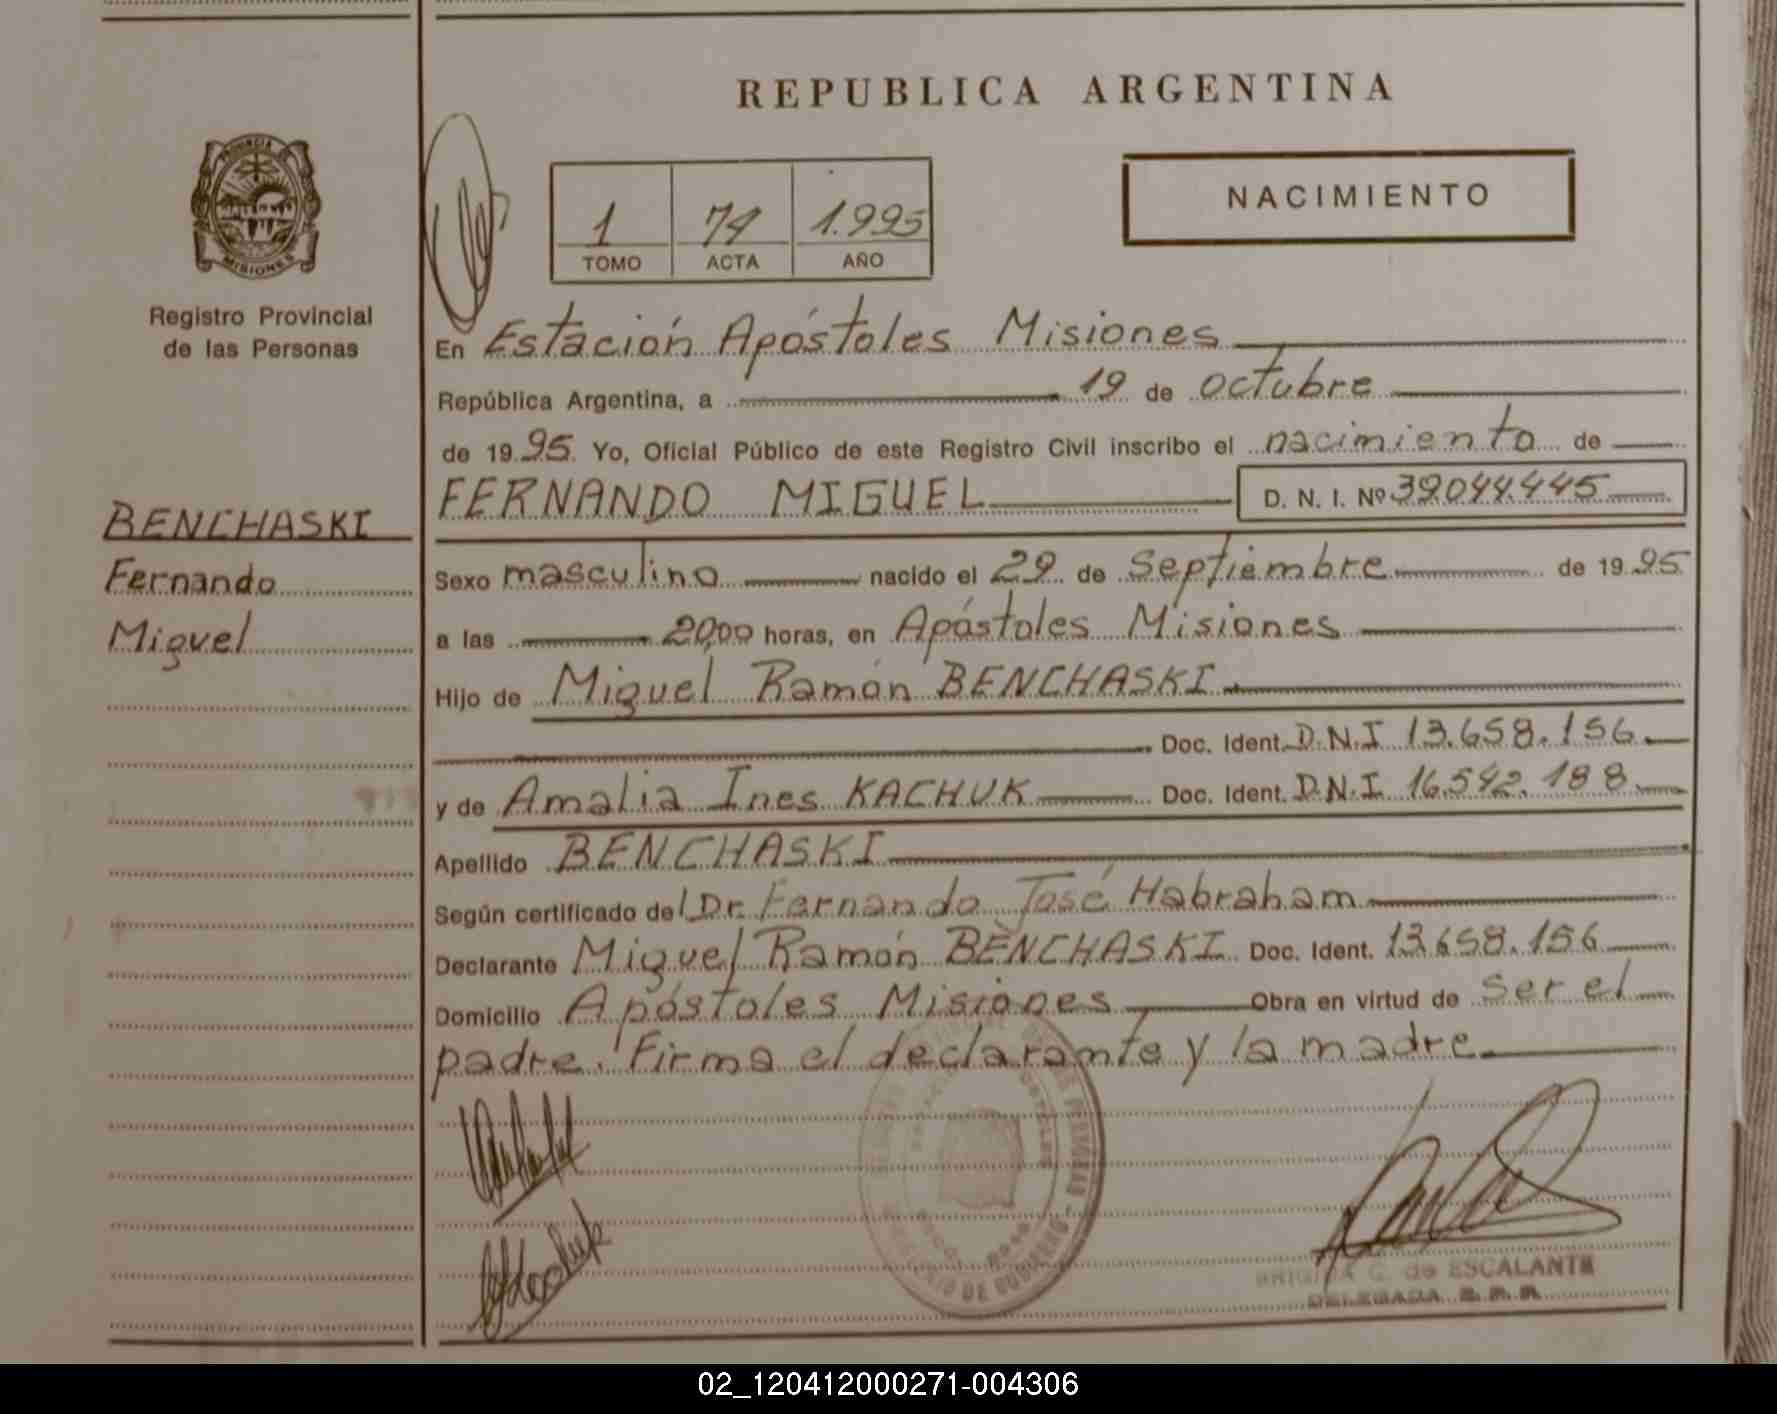 REPUBLICA ARGENTINA
PROVINCIA DE
MISIONES
Registro Provincial
de las Personas
1 74 1.995
TOMO ACTA AÑO
NACIMIENTO
En Estación Apóstoles Misiones
República Argentina, a 19 de octubre
de 19 95 Yo, Oficial Público de este Registro Civil inscribo el nacimiento de
FERNANDO MIGUEL D. N. I. Nº 39044445
BENCHASKI
Fernando
Miguel
Sexo masculino nacido el 29 de Septiembre de 19 95
a las 20,00 horas, en Apóstoles Misiones
Hijo de Miguel Ramón BENCHASKI
Doc. Ident. D.N.I 13.658.156
y de Amalia Ines KACHUK Doc. Ident. D.N.I. 16.542.188
Apellido BENCHASKI
Según certificado del Dr. Fernando José Habraham
Declarante Miguel Ramón BENCHASKI Doc. Ident. 13.658.156
Domicilio Apóstoles Misiones Obra en virtud de ser el
padre. Firma el declarante y la madre
BRIGIDA G. de ESCALANTE
DELEGADA R. P. P.
02_120412000271-004306